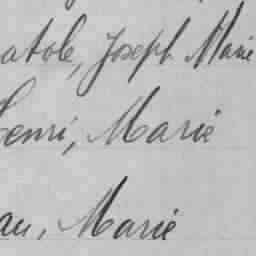 atole, Joseph Marie
Henri, Marie
au, Marie